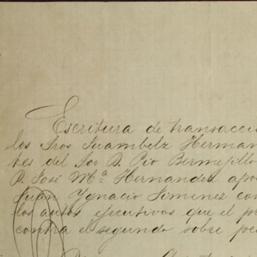 Escritura de transacció
los Sres Juambelz Herman
tes del Sor D. Pio Bermejillo
D. José Mª Hernandez apo
Juan Ygnacio Jimenez con
los autos ejecutivos que el pr
contra el segundo sobre pes